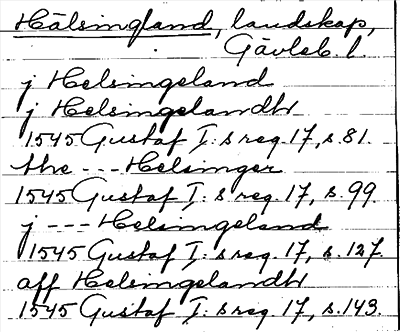 Hälsingland, landskap,
Gävleb. l
j Helsingeland
j Helsingelandh
1545 Gustaf I:s reg. 17, s. 81.
the --- Helsinger
1545 Gustaf I:s reg. 17, s. 99.
j --- Helsingeland
1545 Gustaf I:s reg. 17, s. 127.
aff Helsingelandh
1545 Gustaf I:s reg. 17, s. 143.